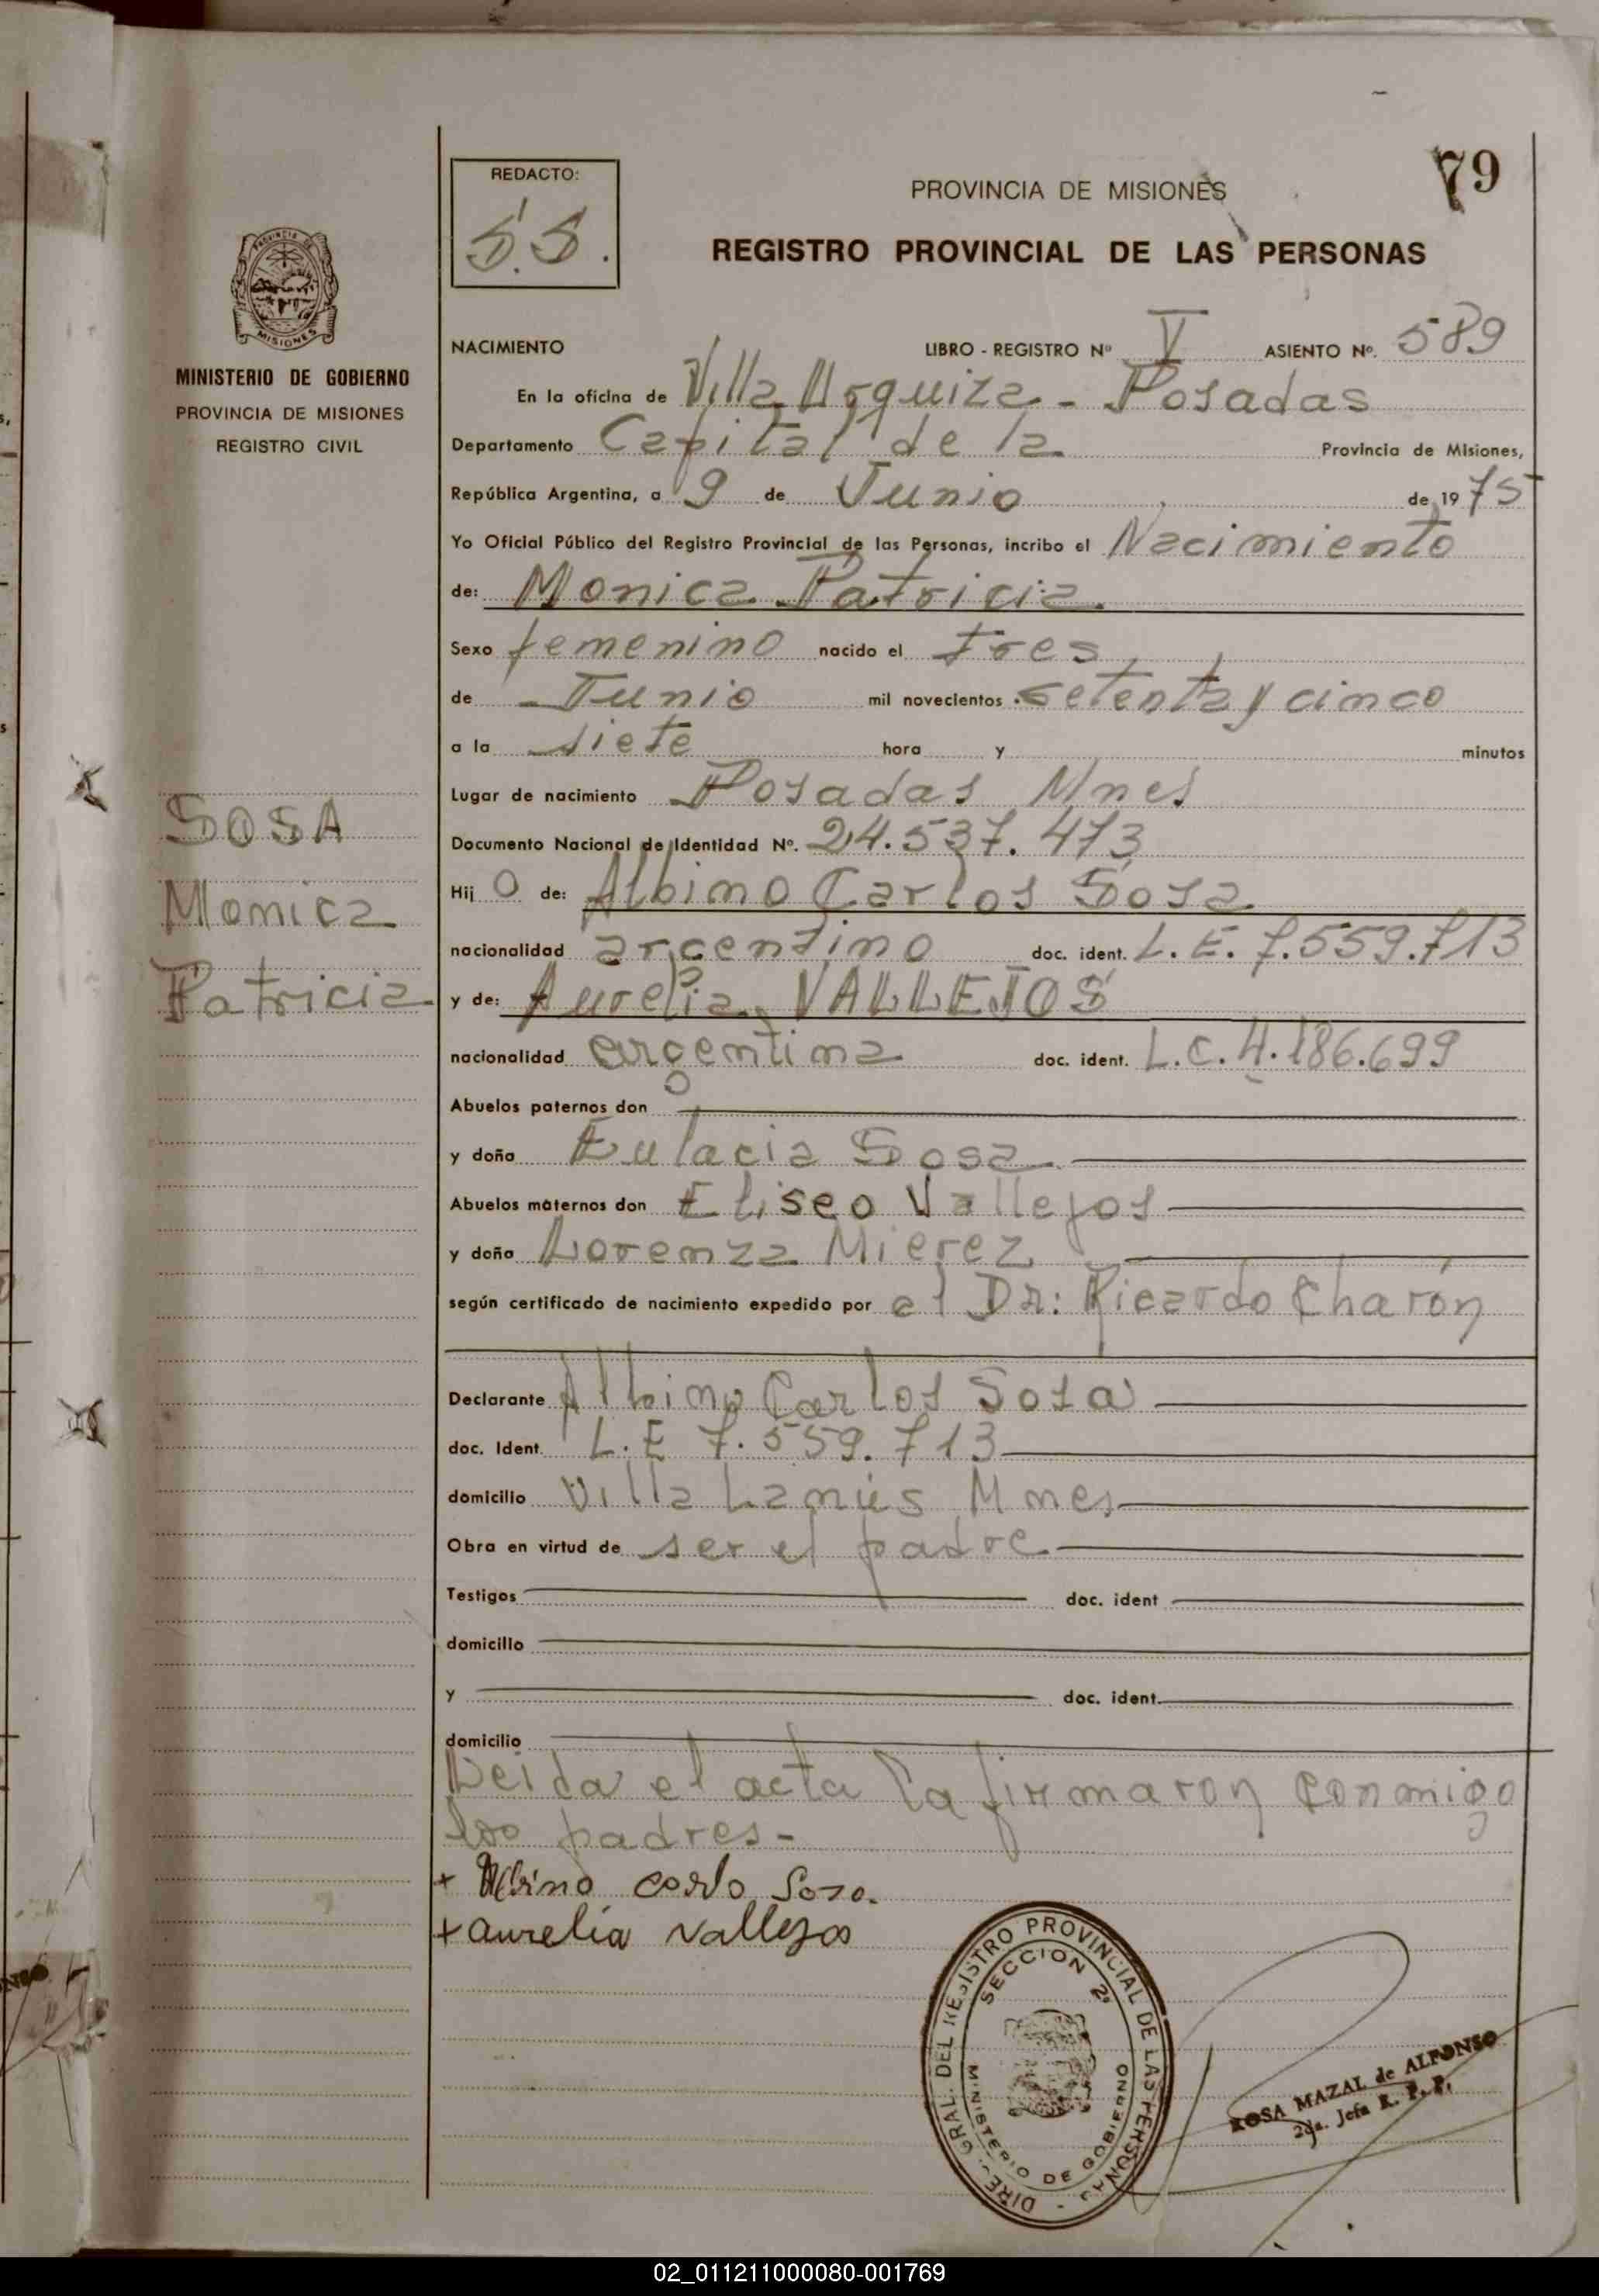 79
REDACTO:
S.S.
PROVINCIA DE MISIONES
REGISTRO PROVINCIAL DE LAS PERSONAS
PROVINCIA DE
MISIONES
MINISTERIO DE GOBIERNO
PROVINCIA DE MISIONES
REGISTRO CIVIL
NACIMIENTO LIBRO - REGISTRO Nº V ASIENTO Nº. 589
En la oficina de Villa Urquiza - Posadas
Departamento Capital de la Provincia de Misiones,
República Argentina, a 9 de Junio de 1975
Yo Oficial Público del Registro Provincial de las Personas, incribo el Nacimiento
de: Monica Patricia
Sexo femenino nacido el tres
de Junio mil novecientos setenta y cinco
a la siete hora y minutos
Lugar de nacimiento Posadas Mnes
SOSA
Monica
Patricia
Documento Nacional de Identidad Nº. 24.537.473
Hij o de: Albino Carlos Sosa
nacionalidad argentino doc. ident. L.E. 7.559.713
y de: Aurelia VALLEJOS
nacionalidad argentina doc. ident. L.C. 4.186.699
Abuelos paternos don
y doña Eulacia Sosa
Abuelos maternos don Eliseo Vallejos
y doña Lorenza Mierez
según certificado de nacimiento expedido por el Dr: Ricardo Charón
Declarante Albino Carlos Sosa
doc. Ident. L.E 7.559.713
domicilio Villa Lanús Mnes
Obra en virtud de ser el padre
Testigos doc. ident
domicilio
y doc. ident.
domicilio
Leida el acta la firmaron conmigo
los padres-
+ Albino carlo Sosa.
+ aurelia vallejos
DIRE. GRAL. DEL REGISTRO PROVINCIAL DE LAS PERSONAS -
SECCION 2ª
MINISTERIO DE GOBIERNO
ROSA MAZAL de ALFONSO
2da. Jefa R. P. P.
02_011211000080-001769